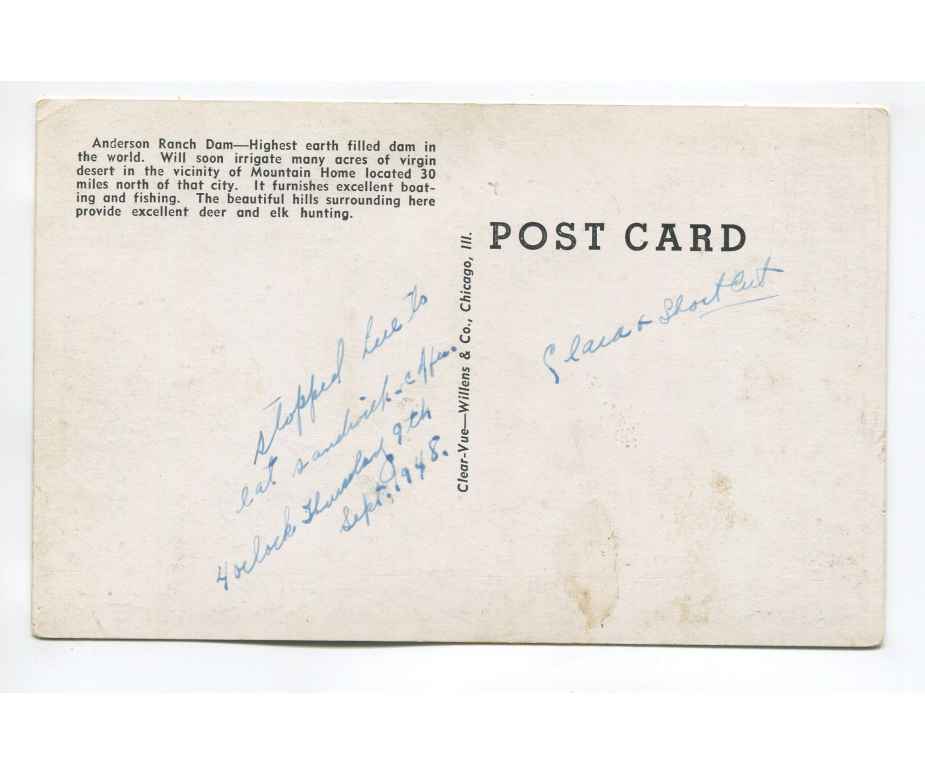 Anderson Ranch Dam—Highest earth filled dam in
the world. Will soon irrigate many acres of virgin
desert in the vicinity of Mountain Home located 30
miles north of that city. It furnishes excellent boat-
ing and fishing. The beautiful hills surrounding here
provide excellent deer and elk hunting.
stopped here to
eat sandwich - coffee.
4 oclock Thursday 9th
Sept. 1948.
Clear-Vue—Willens & Co., Chicago, Ill.
POST CARD
Clara & Short Cut